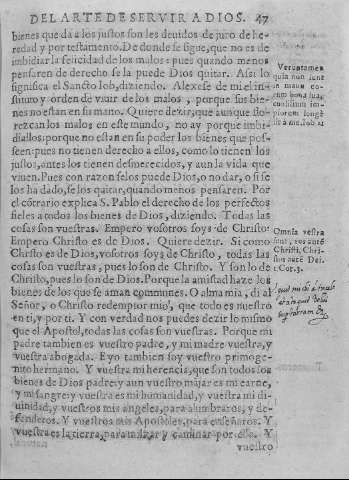 DEL ARTE DE SERVIR A DIOS. 47
bienes que da a los justos son les deuidos de juro de he-
redad y por testamento. De donde se sigue, que no es de
imbidiar la felicidad de los malos: pues quando menos
pensaren de derecho se la puede Dios quitar. Assi lo
significa el Sancto Iob, diziendo. Alexese de mi el in-
stituto y orden de viuir de los malos, porque sus bie-
nes no estan en su mano. Quiere dezir, que aunque flo-
rezcan los malos en este mundo, no ay porque imbi-
diallos, porque no estan en su poder los bienes que pos-
seen: pues no tienen derecho a ellos, como lo tienen los
justos, antes los tienen desmerecidos, y aun la vida que
viuen. Pues con razon se los puede Dios, o no dar, o si se
los ha dado, se los quitar, quando menos pensaren. Por
el cōtrario explica S. Pablo el derecho de los perfectos
fieles a todos los bienes de Dios, diziendo. Todas las
cosas son vuestras. Empero vosotros soys de Christo:
Empero Christo es de Dios. Quiere dezir. Si como
Christo es de Dios, vosotros soys de Christo, todas las
cosas son vuestras, pues lo son de Christo. Y son lo de
Christo, pues lo son de Dios. Porque la amistad haze los
bienes de los que se aman comunes. O alma mia, di al
Señor, o Christo redemptor mio, que todo es nuestro
en ti, y por ti. Y con verdad nos puedes dezir lo mismo
que el Apostol, todas las cosas son vuestras. Porque mi
padre tambien es vuestro padre, y mi madre vuestra, y
vuestra abogada. E yo tambien soy vuestro primoge-
nito hermano. Y vuestra mi herencia, que son todos los
bienes de Dios padre: y aun vuestro mājar es mi carne,
y mi sangre: y vuestra es mi humanidad, y vuestra mi di-
uinidad, y vuestros mis angeles, para alumbraros, y de-
fenderos. Y vuestros mis Apostoles, para enseñaros. Y
vuestra es la tierra, para militar y caminar por ella. Y
vuestro
Veruntamen
quia non sunt
in manu eo-
rum bona sua,
consilium im-
piorum longè
sit à me. Iob 21
Omnia vestra
sunt, vos autē
Christi, Chri-
stus autē Dei.
1. Cor. 3.